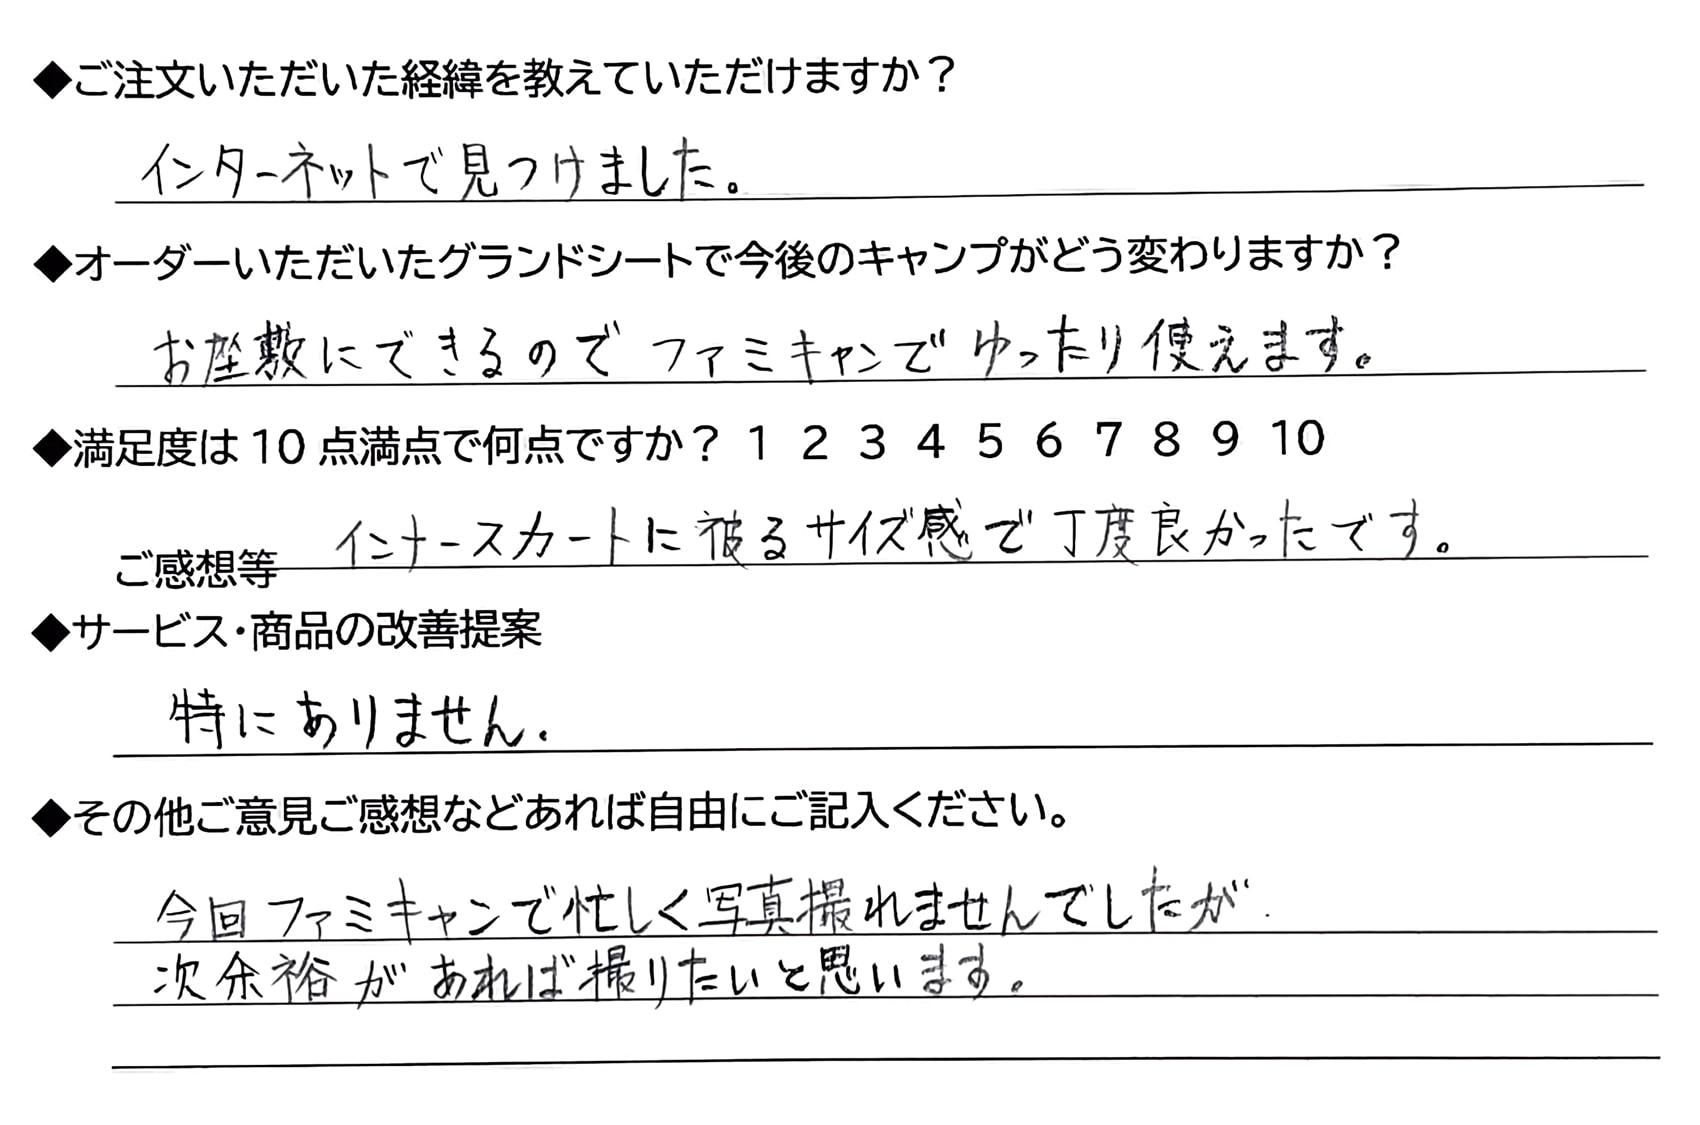 ◆ご注文いただいた経緯を教えていただけますか？
インターネットで見つけました。
◆オーダーいただいたグランドシートで今後のキャンプがどう変わりますか？
お座敷にできるのでファミキャンでゆったり使えます。
◆満足度は10点満点で何点ですか？ 1 2 3 4 5 6 7 8 9 10
ご感想等 インナースカートに被るサイズ感で丁度良かったです。
◆サービス・商品の改善提案
特にありません.
◆その他ご意見ご感想などあれば自由にご記入ください。
今回ファミキャンで忙しく写真撮れませんでしたが.
次余裕があれば撮りたいと思います。